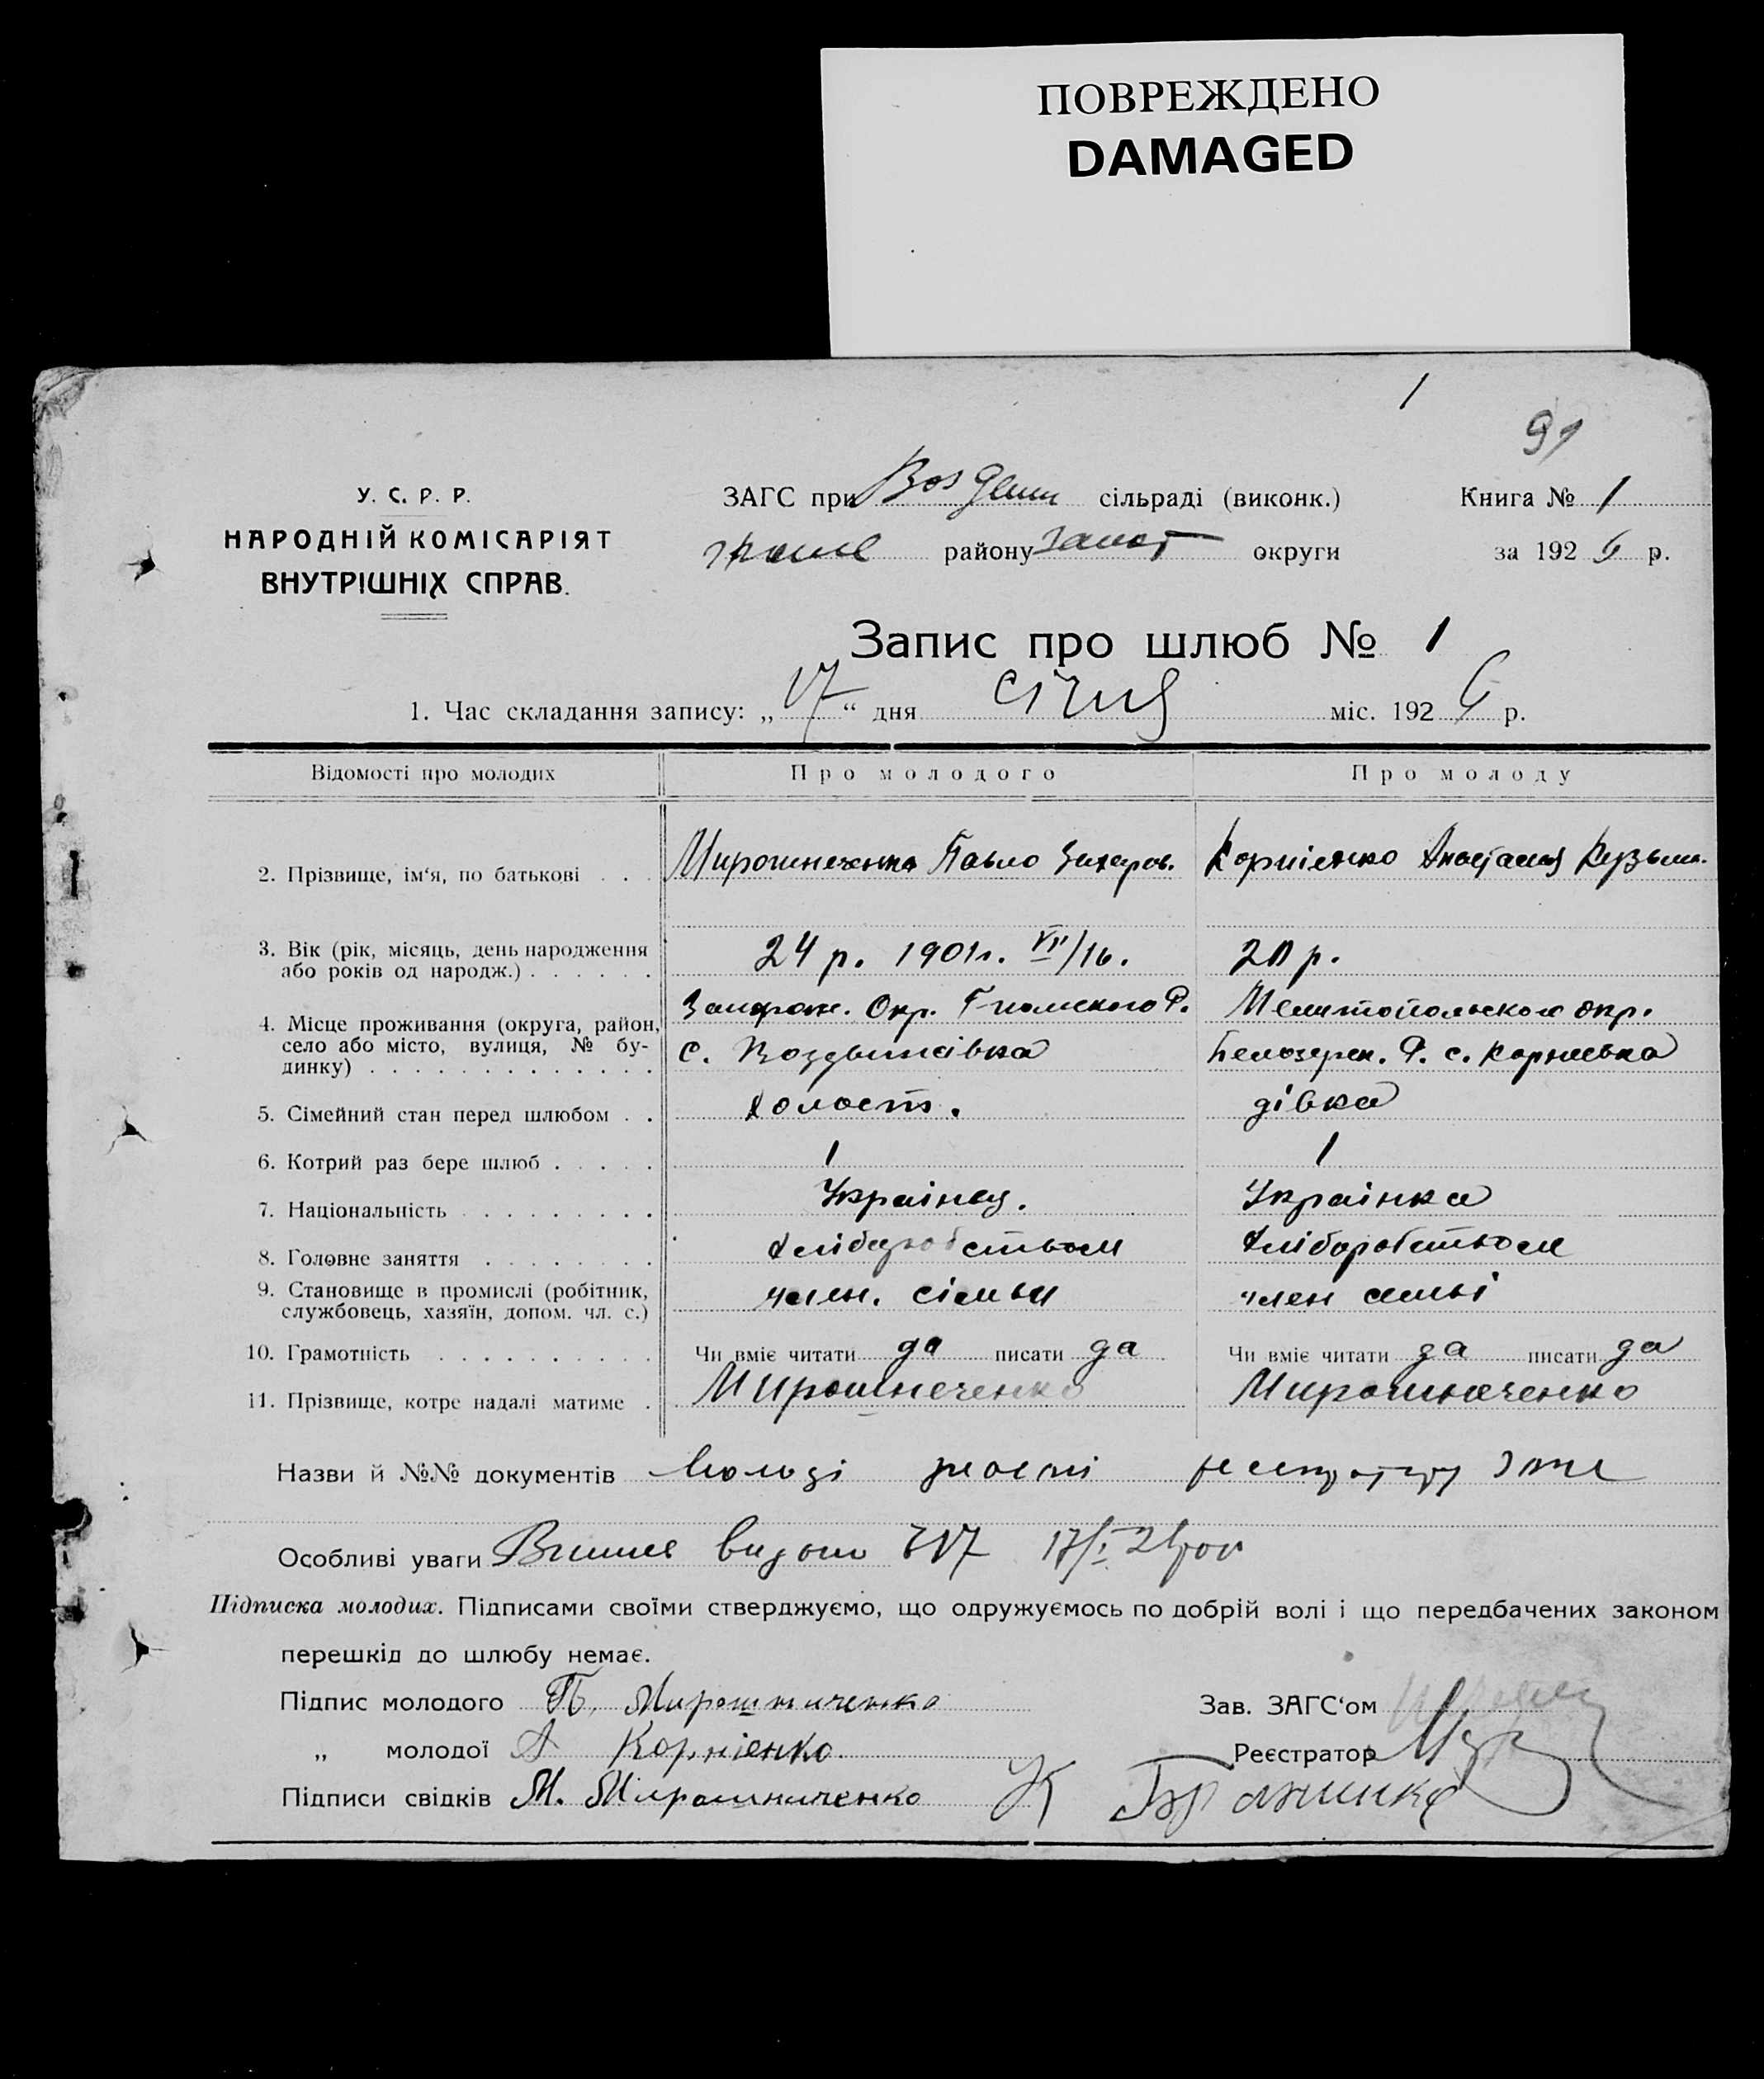 ПОВРЕЖДЕНО
DAMAGED
1
91
У. С. Р. Р.
НАРОДНІЙ КОМІСАРІЯТ
ВНУТРІШНІХ СПРАВ.
ЗАГС при сільраді (виконк.)
району округи
Книга № 1
за 1926 р.
Запис про шлюб № 1
1. Час складання запису: „17“ дня січня міс. 1926 р.
Відомості про молодих Про молодого Про молоду
2. Прізвище, ім‘я, по батькові . . . Мирошнеченко Павло Захаров. Корніенко Анастасия Кузьм.
3. Вік (рік, місяць, день народження
або років од народж.) . . . . . . 24 р. 1901г. VII/16. 20 р.
4. Місце проживання (округа, район,
село або місто, вулиця, № бу-
динку) . . . . . . . . . . . . .
Запорож. Окр. Р.
с. Воздвижівка
Мелитопольской окр.
Белозерск. Р. с. Корнеевка
5. Сімейний стан перед шлюбом . . холост. дівка
6. Котрий раз бере шлюб . . . . . 1 1
7. Національність . . . . . . . . . Українец. Українка
8. Головне заняття . . . . . . . . хліборобством хліборобством
9. Становище в промислі (робітник,
службовець, хазяїн, допом. чл. с.) член. сімьи член семьі
10. Грамотність . . . . . . . . . . Чи вміє читати да писати да Чи вміє читати да писати да
11. Прізвище, котре надалі матиме . Мирошнеченко Мирошнеченко
Назви й №№ документів
Особливі уваги 17/I
Підписка молодих. Підписами своїми стверджуємо, що одружуємось по добрій волі і що передбачених законом
перешкід до шлюбу немає.
Підпис молодого П. Мирошниченко
„ молодої А Корніенко
Підписи свідків М. Мирошниченко К
Зав. ЗАГС‘ом
Реєстратор